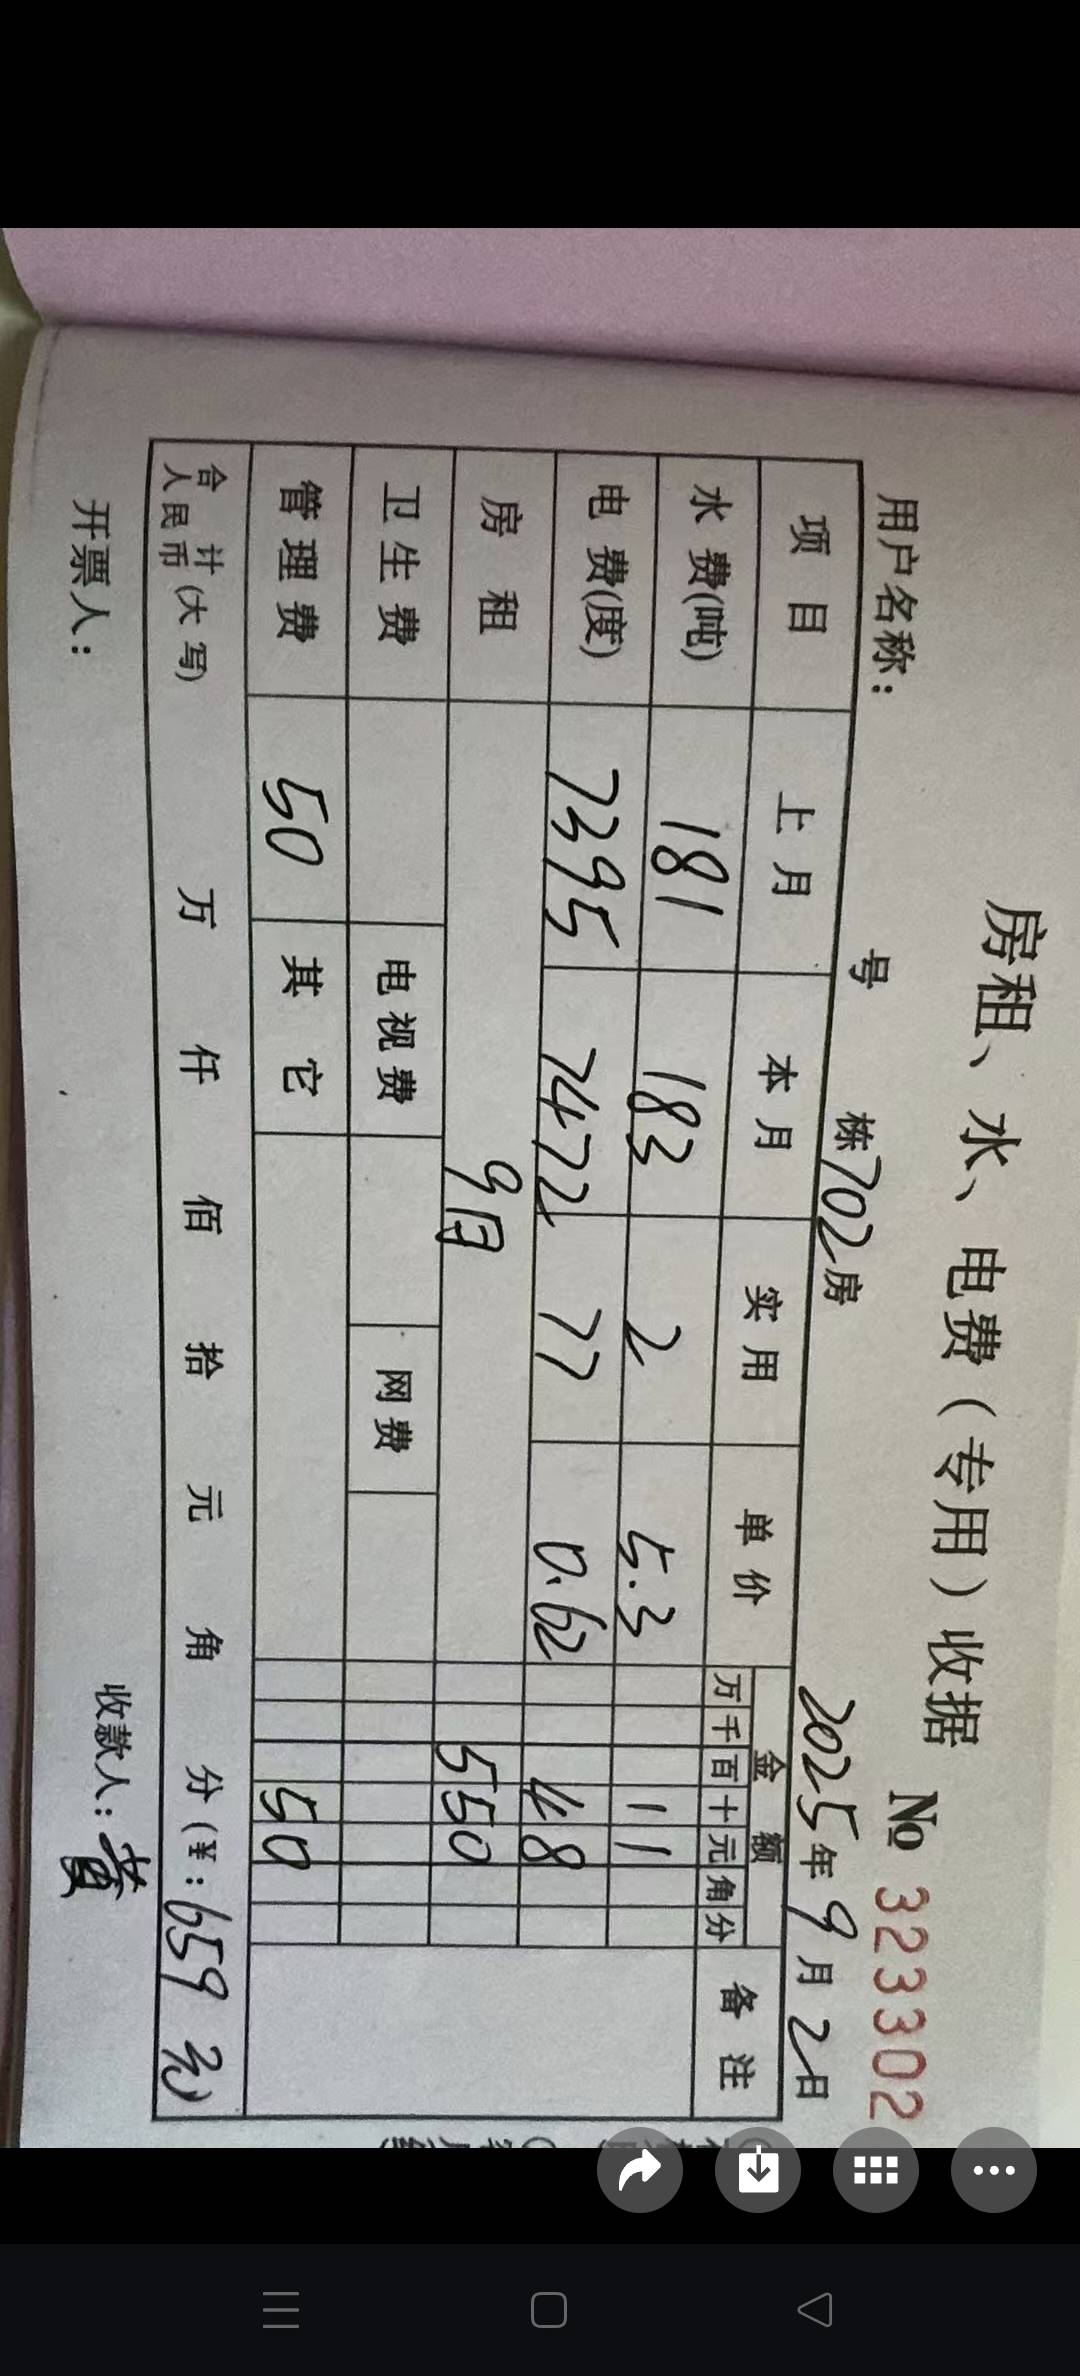 房租、水、电费（专用）收据 № 323302
用户名称： 号 栋702房 2025年9月2日
项目 上月 本月 实用 单价 金额 备注
万千百十元角分
水费(吨) 181 183 2 5.3 11
电费(度) 7395 7472 77 0.62 48
房租 9月 550
卫生费 电视费 网费
管理费 50 其它 50
合计人民币(大写) 万 仟 佰 拾 元 角 分(¥:659元)
开票人： 收款人：黄